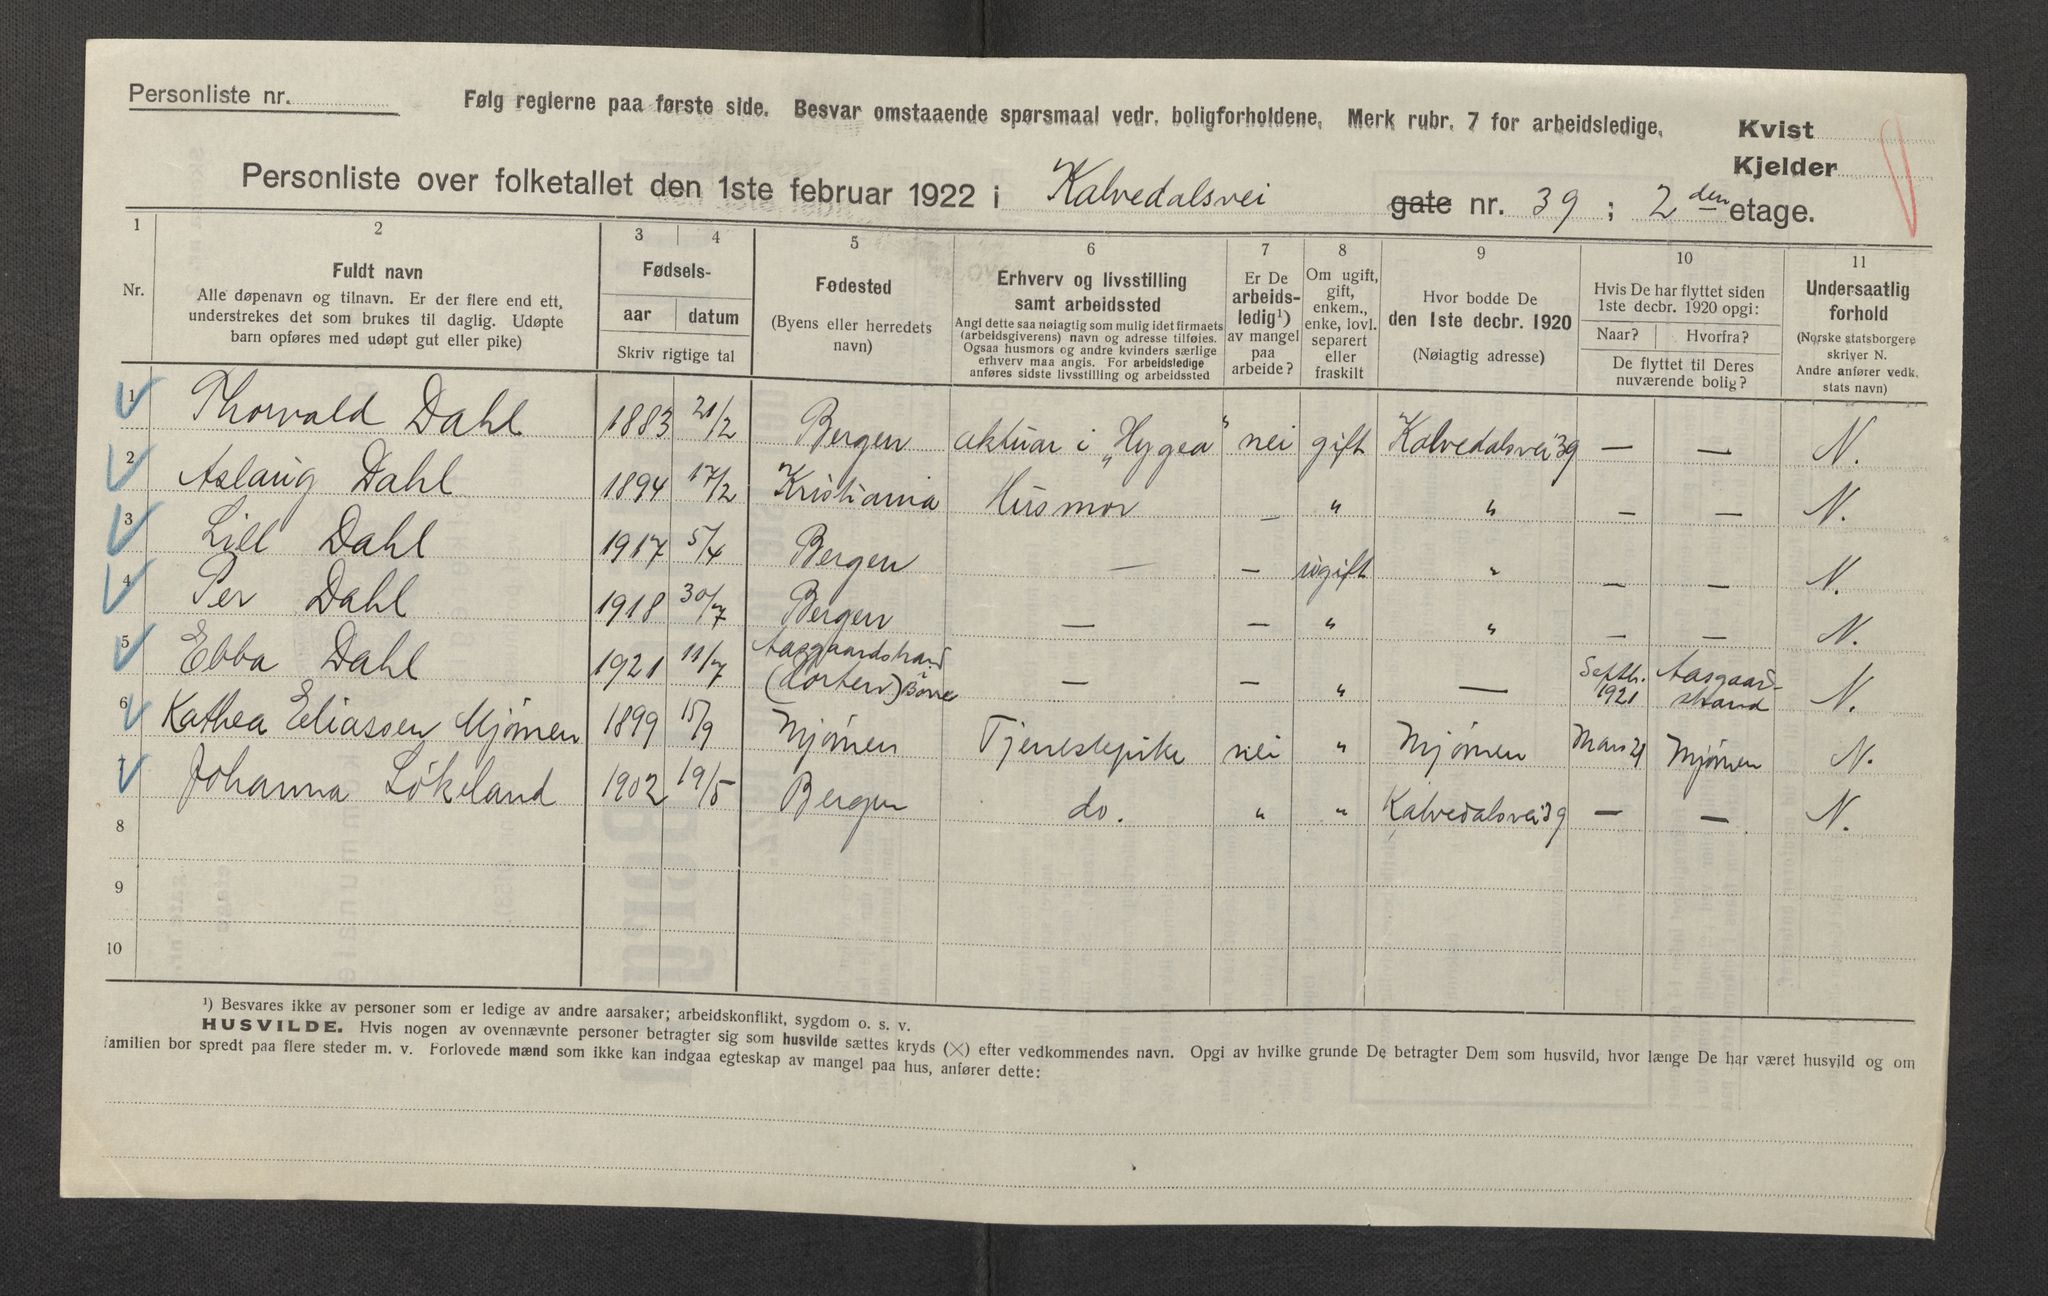 Personliste nr.
Følg reglerne paa første side. Besvar omstaaende spørsmaal vedr. boligforholdene. Merk rubr. 7 for arbeidsledige.
Kvist
Kjelder
Personliste over folketallet den 1ste februar 1922 i Kalvedalsvei gate nr. 39 ; 2 den etage.
1 2 3 4 5 6 7 8 9 10 11
Nr.
Fuldt navn
Alle døpenavn og tilnavn. Er der flere end ett,
understrekes det som brukes til daglig. Udøpte
barn opføres med udøpt gut eller pike)
Fødsels-
aar datum
Skriv rigtige tal
Fødested
(Byens eller herredets
navn)
Erhverv og livsstilling
samt arbeidssted
Angi dette saa nøiagtig som mulig idet firmaets
(arbeidsgiverens) navn og adresse tilføies.
Ogsaa husmors og andre kvinders særlige
erhverv maa angis. For arbeidsledige
anføres sidste livsstilling og arbeidssted
Er De
arbeids-
ledig¹)
av mangel
paa
arbeide?
Om ugift,
gift,
enkem.,
enke, lovl.
separert
eller
fraskilt
Hvor bodde De
den 1ste decbr. 1920
(Nøiagtig adresse)
Hvis De har flyttet siden
1ste decbr. 1920 opgi:
Naar? Hvorfra?
De flyttet til Deres
nuværende bolig?
Undersaatlig
forhold
(Norske statsborgere
skriver N.
Andre anfører vedk.
stats navn)
1 Thorvald Dahl 1883 21/2 Bergen aktuar i „Hygea" nei gift Kalvedalsvei 39 — — N.
2 Aslaug Dahl 1894 17/2 Kristiania Husmor — " " — — N.
3 Lill Dahl 1917 5/4 Bergen — — ugift " — — N.
4 Per Dahl 1918 30/7 Bergen — — " " — — N.
5 Ebba Dahl 1921 11/7 Aasgaardstrand (Horten) Borre — — " — Septbr. 1921 Aasgaard-strand N.
6 Kathea Eliassen Mjømen 1899 15/9 Mjømen Tjenestepike nei " Mjømen Mars 21 Mjømen N.
7 Johanna Løkeland 1902 19/5 Bergen do. " " Kalvedalsvei 39 — — N.
8
9
10
¹) Besvares ikke av personer som er ledige av andre aarsaker; arbeidskonflikt, sygdom o. s. v.
HUSVILDE. Hvis nogen av ovennævnte personer betragter sig som husvilde sættes kryds (×) efter vedkommendes navn. Opgi av hvilke grunde De betragter Dem som husvild, hvor længe De har været husvild og om
familien bor spredt paa flere steder m. v. Forlovede mænd som ikke kan indgaa egteskap av mangel paa hus, anfører dette: